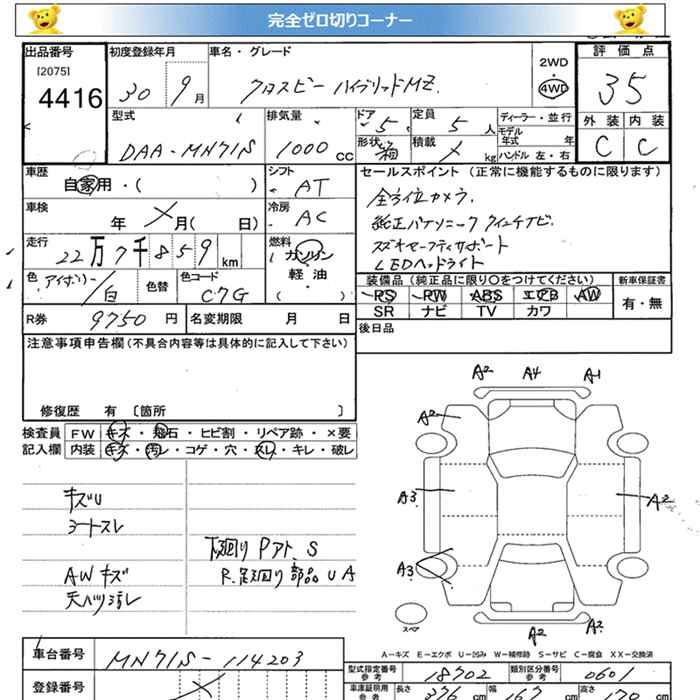 完全ゼロ切りコーナー
出品番号
[2075]
4416
初度登録年月
30 9月
車名・グレード
クロスビー ハイブリッドMZ
2WD
・
4WD
評価点
3.5
外装 内装
C C
型式
DAA-MN71S
排気量
1000 cc
ドア
5
形状
箱
定員
5 人
積載
kg
ディーラー・並行
モデル年式 年
ハンドル 左・右
車歴
自家用・( )
シフト
AT
車検
年 月( 日)
冷房
AC
走行
22万7千859km
燃料
ガソリン
軽油
( )
色
アイボリー/白
色替
色コード
C7G
R券
9750円
名変期限 月 日
セールスポイント (正常に機能するものに限ります)
全方位カメラ
純正パナソニック 9インチナビ
スズキセーフティサポート
LEDヘッドライト
装備品(純正品に限り○をつけてください)
PS PW ABS エアB AW
SR ナビ TV カワ
新車保証書
有・無
後日品
注意事項申告欄(不具合内容等は具体的に記入して下さい)
修復歴 有 〔箇所 〕
検査員記入欄
FW キズ・飛石・ヒビ割・リペア跡・×要
内装 キズ・汚レ・コゲ・穴・スレ・キレ・破レ
キズU
シートスレ
AWキズ
天ハリ汚レ
下廻り Pアト、S
R.足廻り部品UA
A2 A4 A1
A2
A3 A2
A3
A2 A2
スペア
A-キズ E-エクボ U-凹み W-補修跡 S-サビ C-腐食 XX-交換済
車台番号
MN71S-114203
登録番号
型式指定番号
参考
18702
類別区分番号
参考
0601
車庫証明用
参考
長さ 376cm 幅 167cm 高さ 170cm